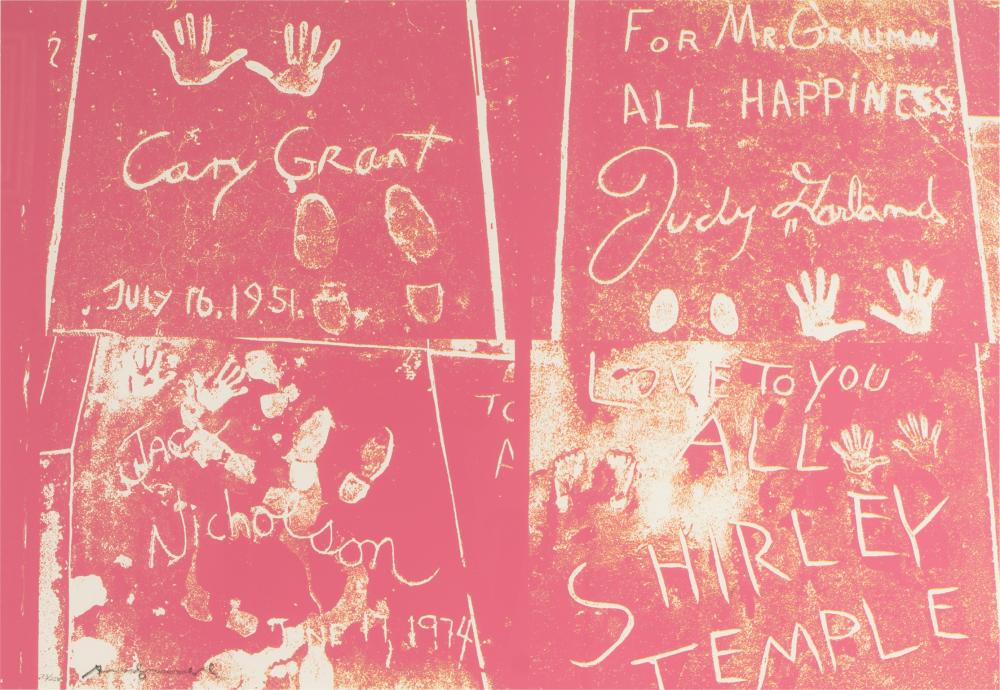 Cary Grant
JULY 16, 1951.
FOR MR. GRAUMAN
ALL HAPPINESS
Judy Garland
JACK
Nicholson
JUNE 17, 1974
LOVE TO YOU
ALL
SHIRLEY
TEMPLE